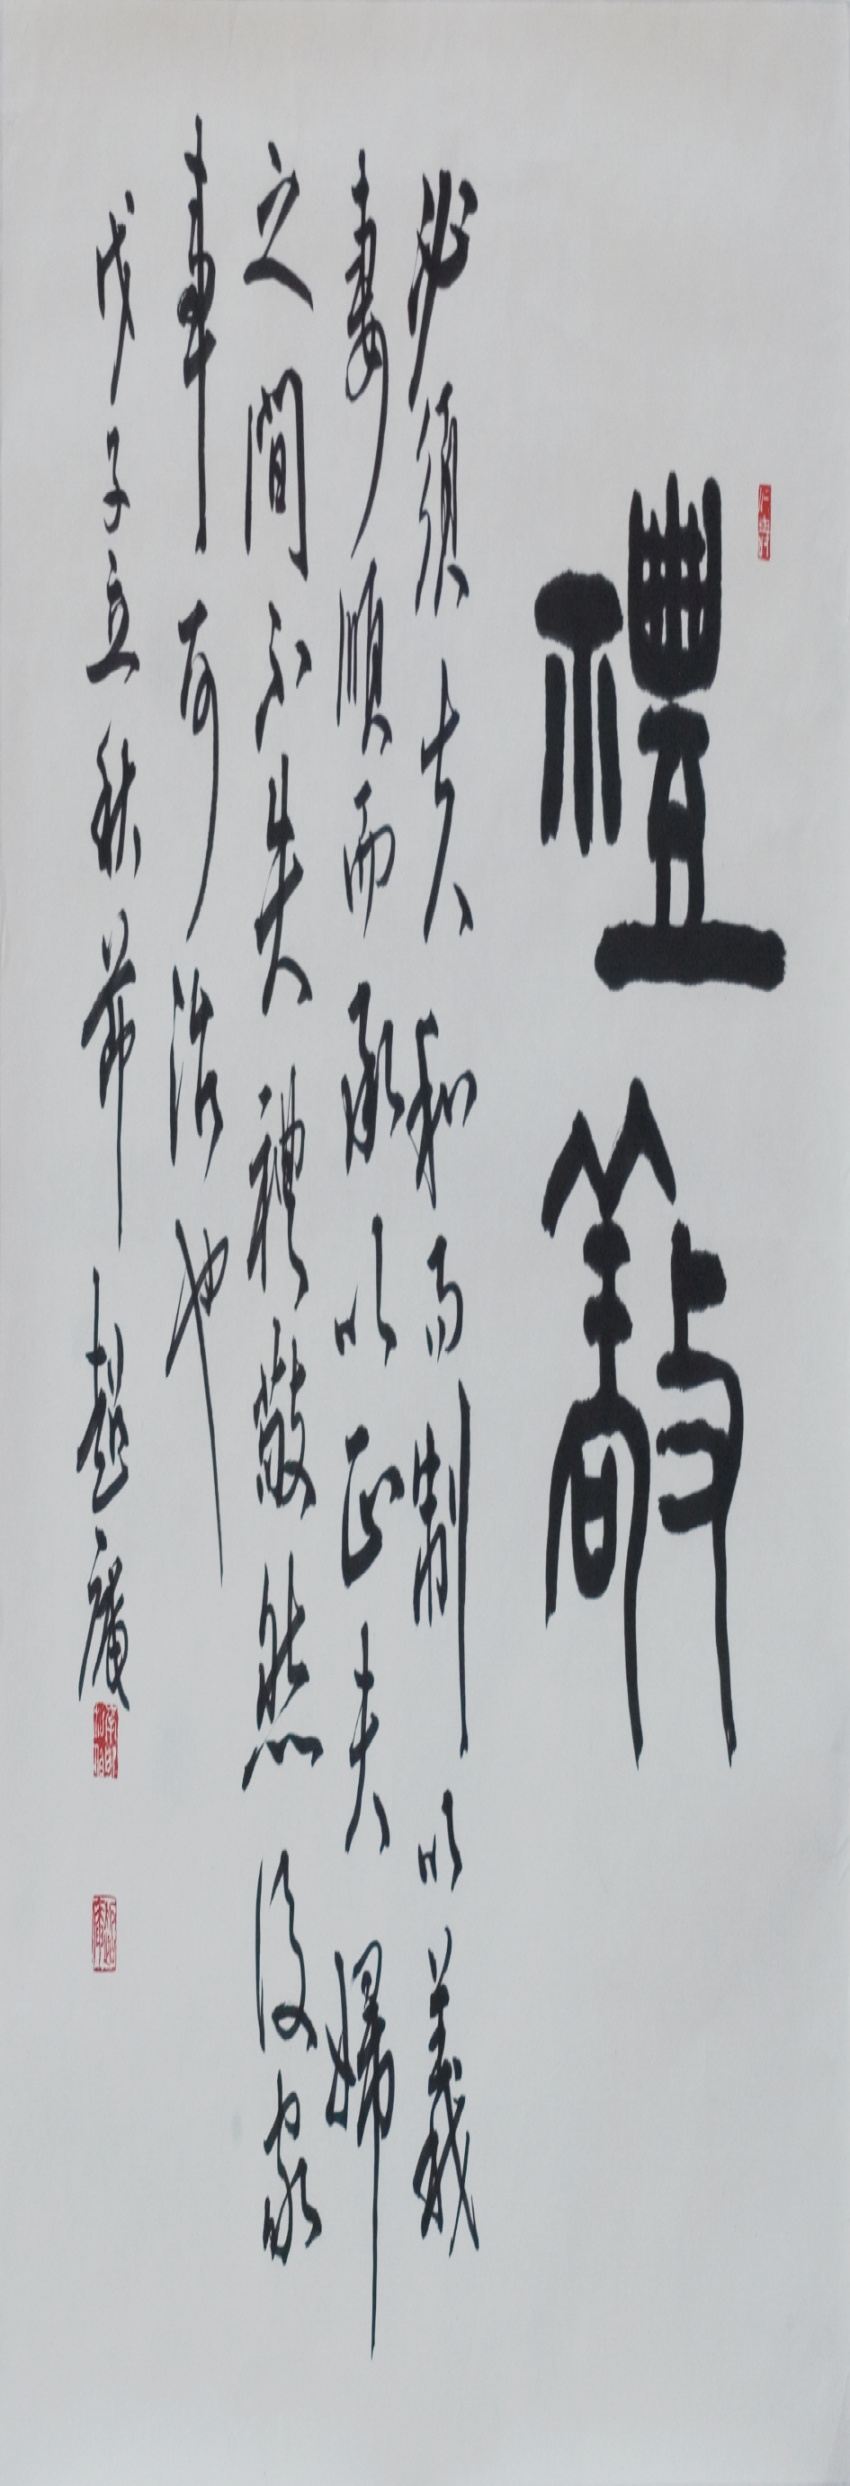 禮敬
必須夫和而制以義
妻順而承以正夫婦
之間不失禮敬然後家
事可治也
戊子立秋節 趙廣